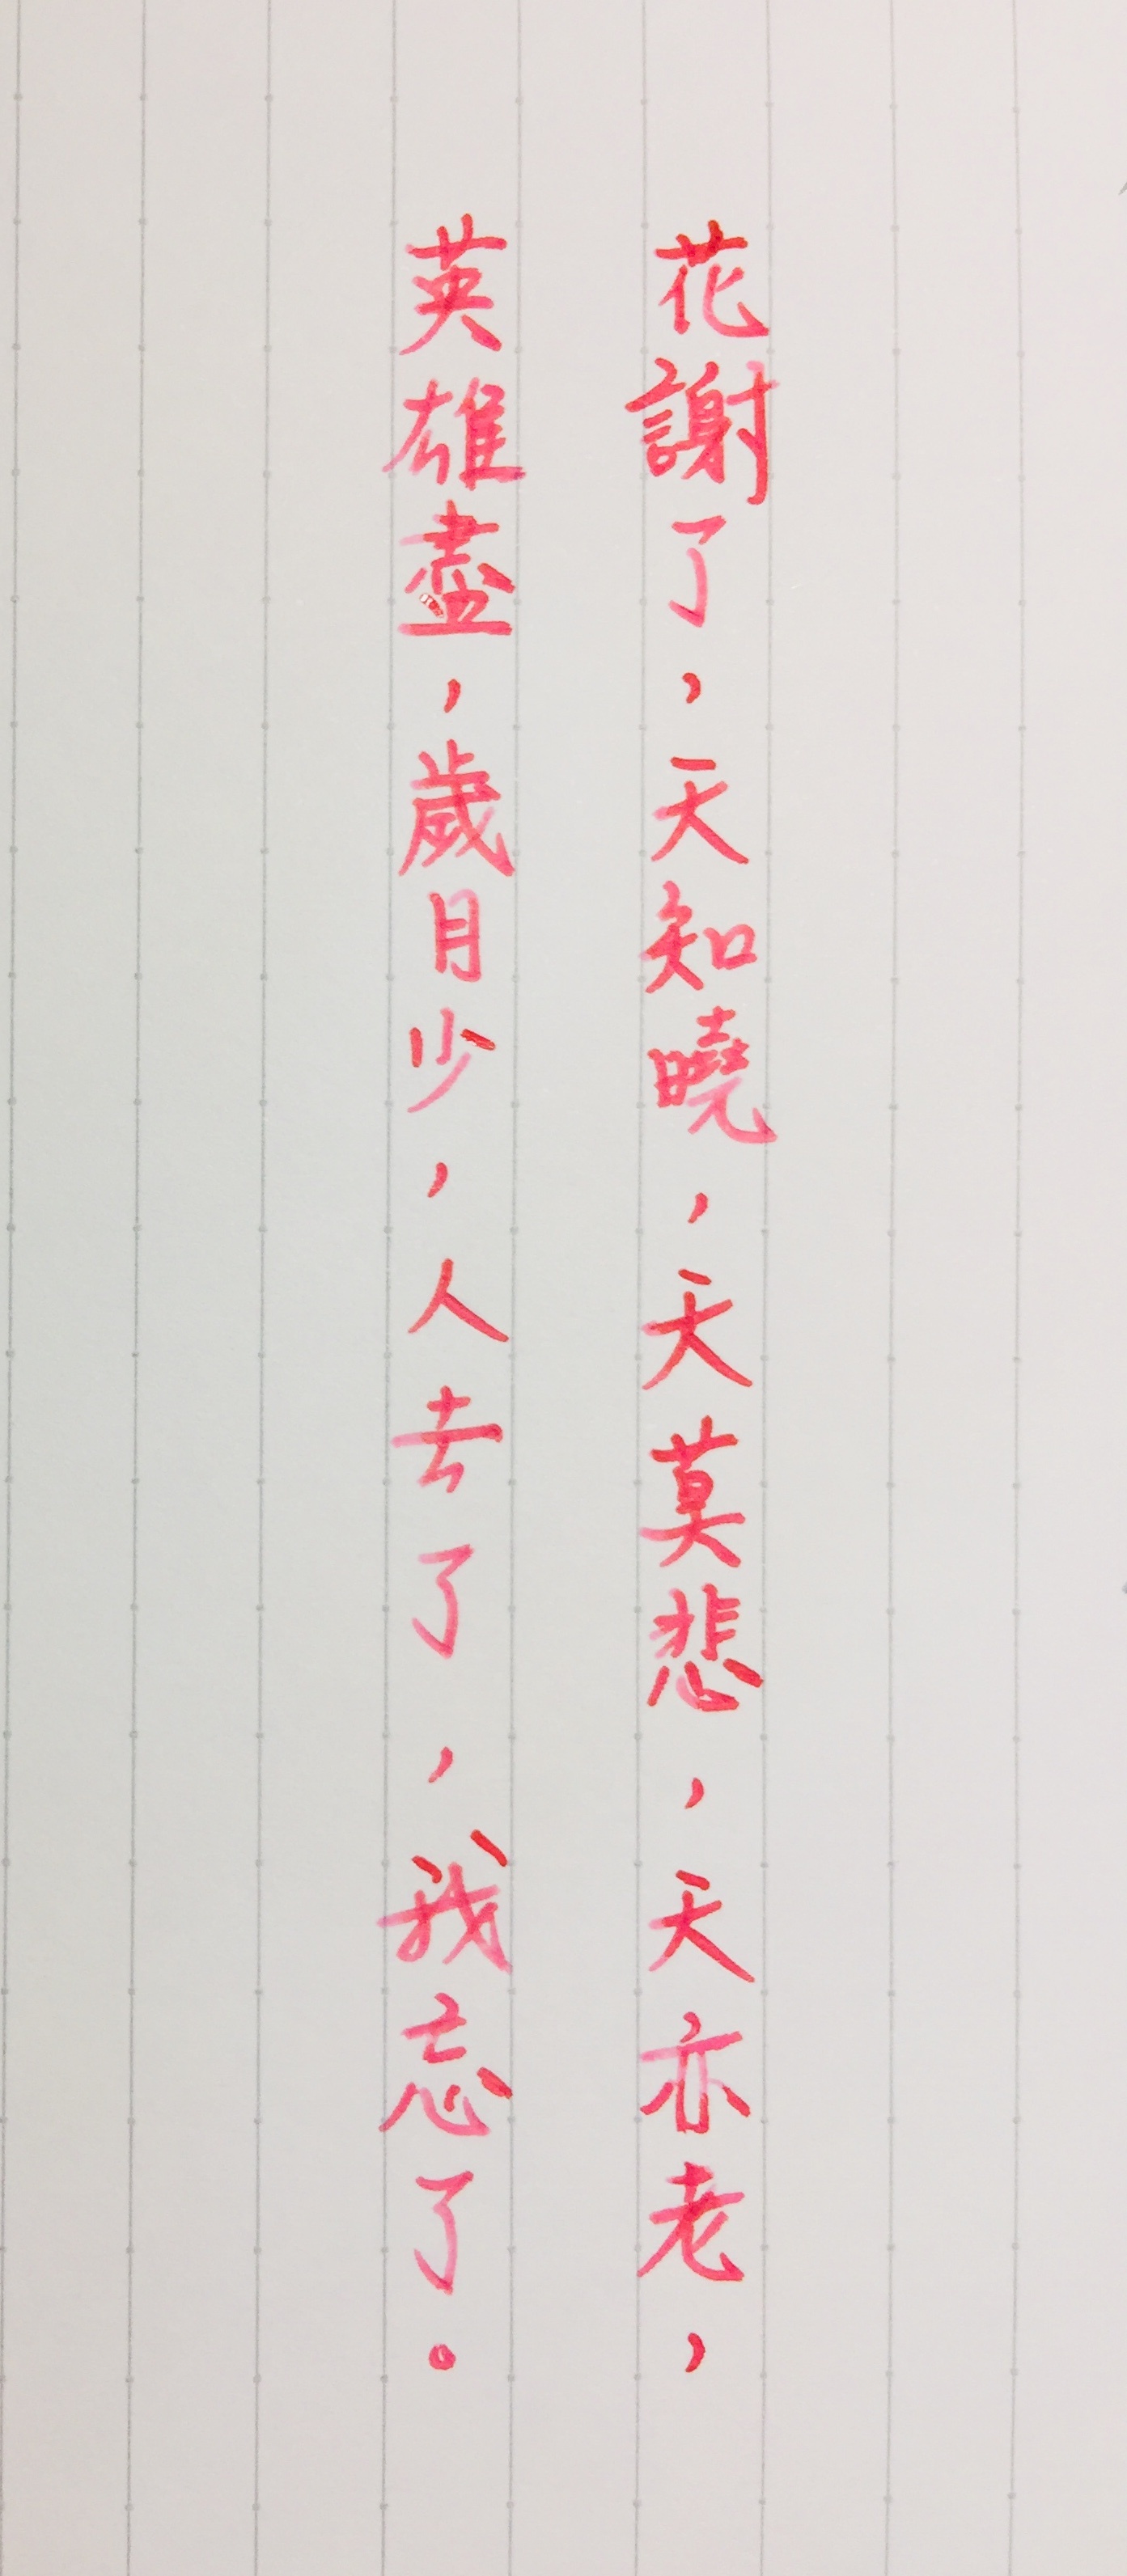 花謝了，天知曉，天莫悲，天亦老，
英雄盡，歲月少，人去了，我忘了。